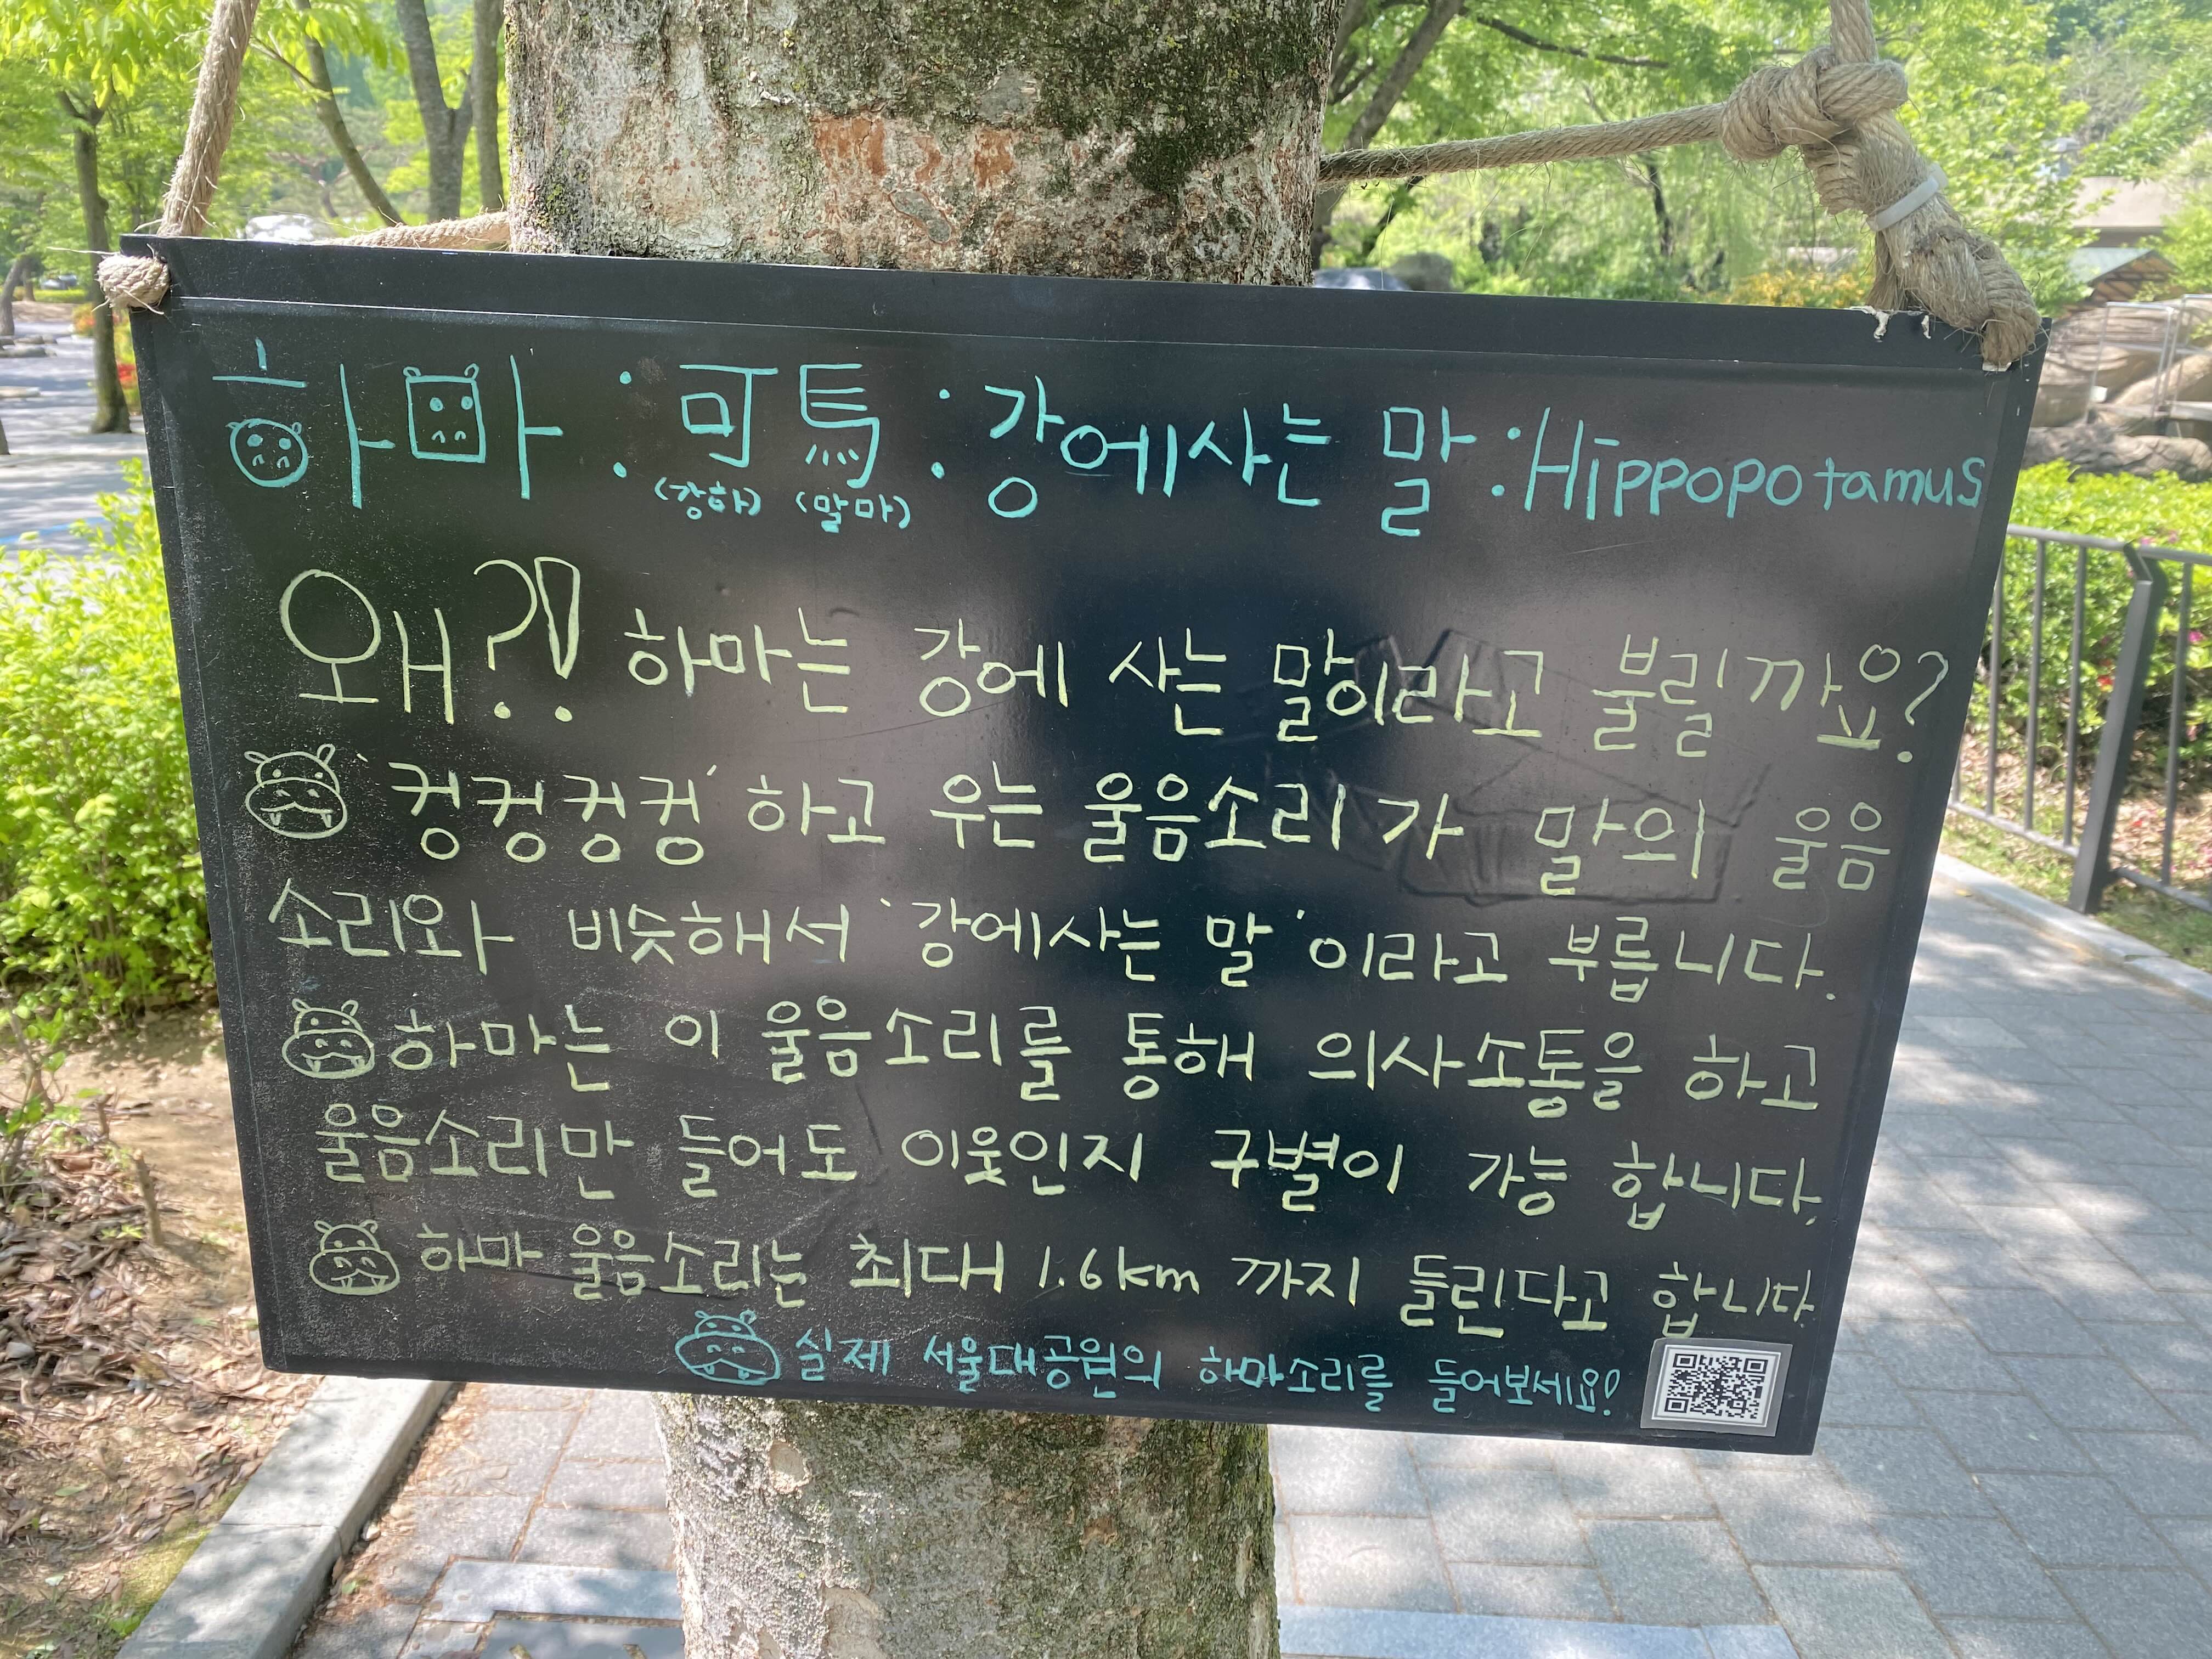 하마 : 可馬 : 강에사는 말 : Hippopotamus
(강하) (말마)
왜?! 하마는 강에 사는 말이라고 불릴까요?
'컹컹컹컹' 하고 우는 울음소리가 말의 울음
소리와 비슷해서 '강에사는 말'이라고 부릅니다.
하마는 이 울음소리를 통해 의사소통을 하고
울음소리만 들어도 이웃인지 구별이 가능 합니다.
하마 울음소리는 최대 1.6km 까지 들린다고 합니다
실제 서울대공원의 하마소리를 들어보세요!